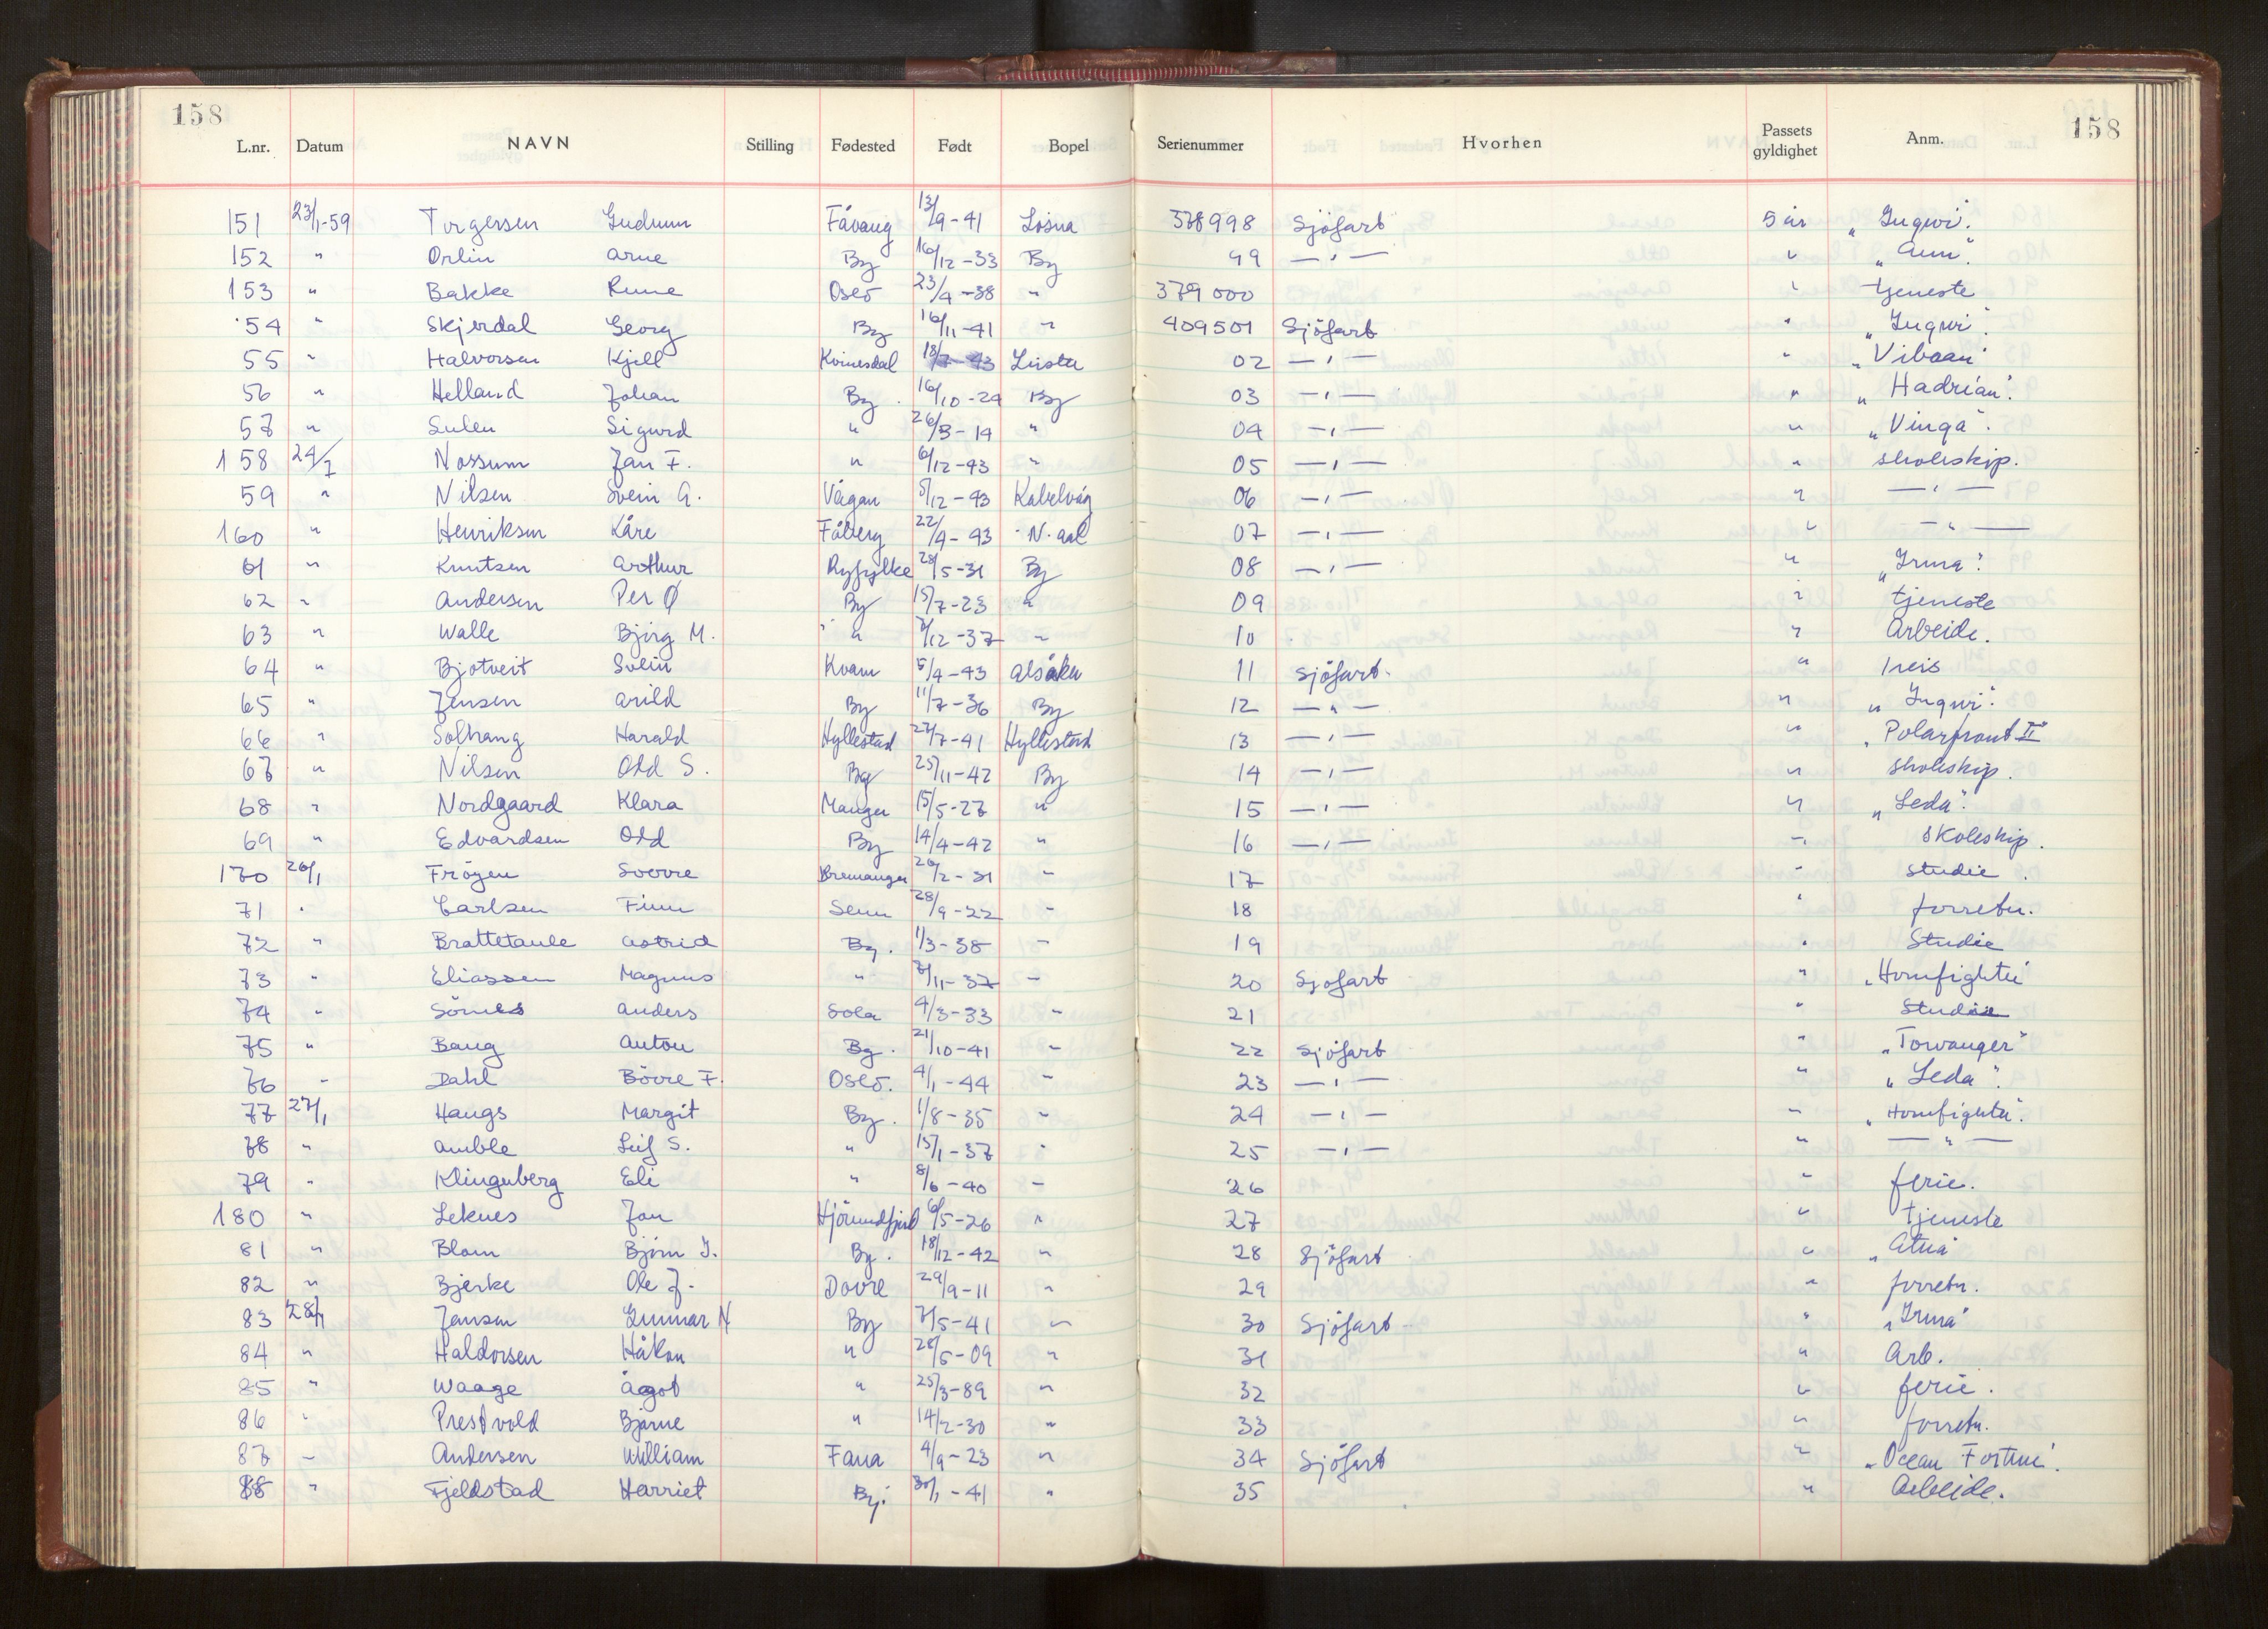 158
158
L.nr. Datum NAVN Stilling Fødested Født Bopel Serienummer Hvorhen Passets gyldighet Anm.
151 23/1-59 Torgersen Gudrun Fåvang 13/9-41 Losna 378998 Sjöfart 5 år "Ingwi".
152 " Orlin Arne By 16/12-33 By 99 —"— " "Ann".
153 " Bakke Rune Oslo 23/4-38 " 379000 " tjeneste
54 " Skjerdal Georg By 16/11-41 " 409501 Sjöfart " "Ingwi".
55 " Halvorsen Kjell Kvinesdal 18/7-43 Lista 02 —"— " "Vibran"
56 " Helland Johan By. 16/10-24 By 03 —"— " "Hadrian".
57 " Sulen Sigurd " 26/3-14 " 04 —"— " "Vinga".
158 24/1 Nossum Jan F. " 6/12-43 " 05 —"— " skoleskip.
59 " Nilsen Svein A. Vågan 5/12-43 Kabelvåg 06 —"— " —"—
160 " Henriksen Kåre Fåberg 22/4-43 N. aal 07 —"— " —"—
61 " Knutsen Arthur Ryfylke 28/5-31 By 08 —"— " "Irma".
62 " Andersen Per Ø By 15/7-23 " 09 " tjeneste
63 " Walle Bjørg M. " /12-37 " 10 " Arbeide.
64 " Bjotveit Svein Kvam 5/4-43 Alsåker 11 Sjöfart. " 1 reis
65 " Jensen Arild By 11/7-36 By 12 —"— " "Ingwi".
66 " Solhaug Harald Hyllestad 27/7-41 Hyllestad 13 —"— " "Polarfront II"
67 " Nilsen Odd S. By 25/11-42 By 14 —"— " skoleskip.
68 " Nordgaard Klara Manger 15/5-27 " 15 —"— " "Leda".
69 " Edvardsen Odd By 14/4-42 " 16 —"— " Skoleskip.
170 26/1 Fröyen Sverre Bremanger 20/2-31 " 17 " studie.
71 " Carlsen Finn 28/9-22 " 18 " forretn.
72 " Brattetaule Astrid By. 1/3-38 " 19 " Studie
73 " Eliassen Magnus " 7/11-37 " 20 Sjöfart " "Hornfighter"
74 " Sömes Anders Sola 4/3-33 " 21 " Studie
75 " Baug Anton By. 21/10-41 " 22 Sjöfart " "Torvanger"
76 " Dahl Börre F. Oslo. 4/1-44 " 23 —"— " "Leda".
77 27/1 Haugs Margit By. 1/8-35 " 24 —"— " "Hornfighter".
78 " Amble Leif S. " 15/1-37 " 25 —"— " —"—
79 " Klingenberg Eli " 8/6-40 " 26 " ferie.
180 " Leknes Jan Hjörundfjord 6/5-26 " 27 " tjeneste
81 " Blom Bjørn J. By. 18/12-42 " 28 Sjöfart " "Atna"
82 " Bjerke Ole J. Dovre 29/9-11 " 29 " forretn.
83 28/1 Jensen Gunnar N By 7/5-41 " 30 Sjöfart " "Irma"
84 " Haldorsen Håkon " 28/5-09 " 31 " Arb.
85 " Waage Ågot " 25/3-89 " 32 " ferie.
86 " Prestvold Bjarne " 14/2-30 " 33 " forretn.
87 " Andersen William Fana 4/9-23 " 34 Sjöfart " "Ocean Fortune".
88 " Fjeldstad Harriet By. 30/1-41 " 35 " Arbeide.